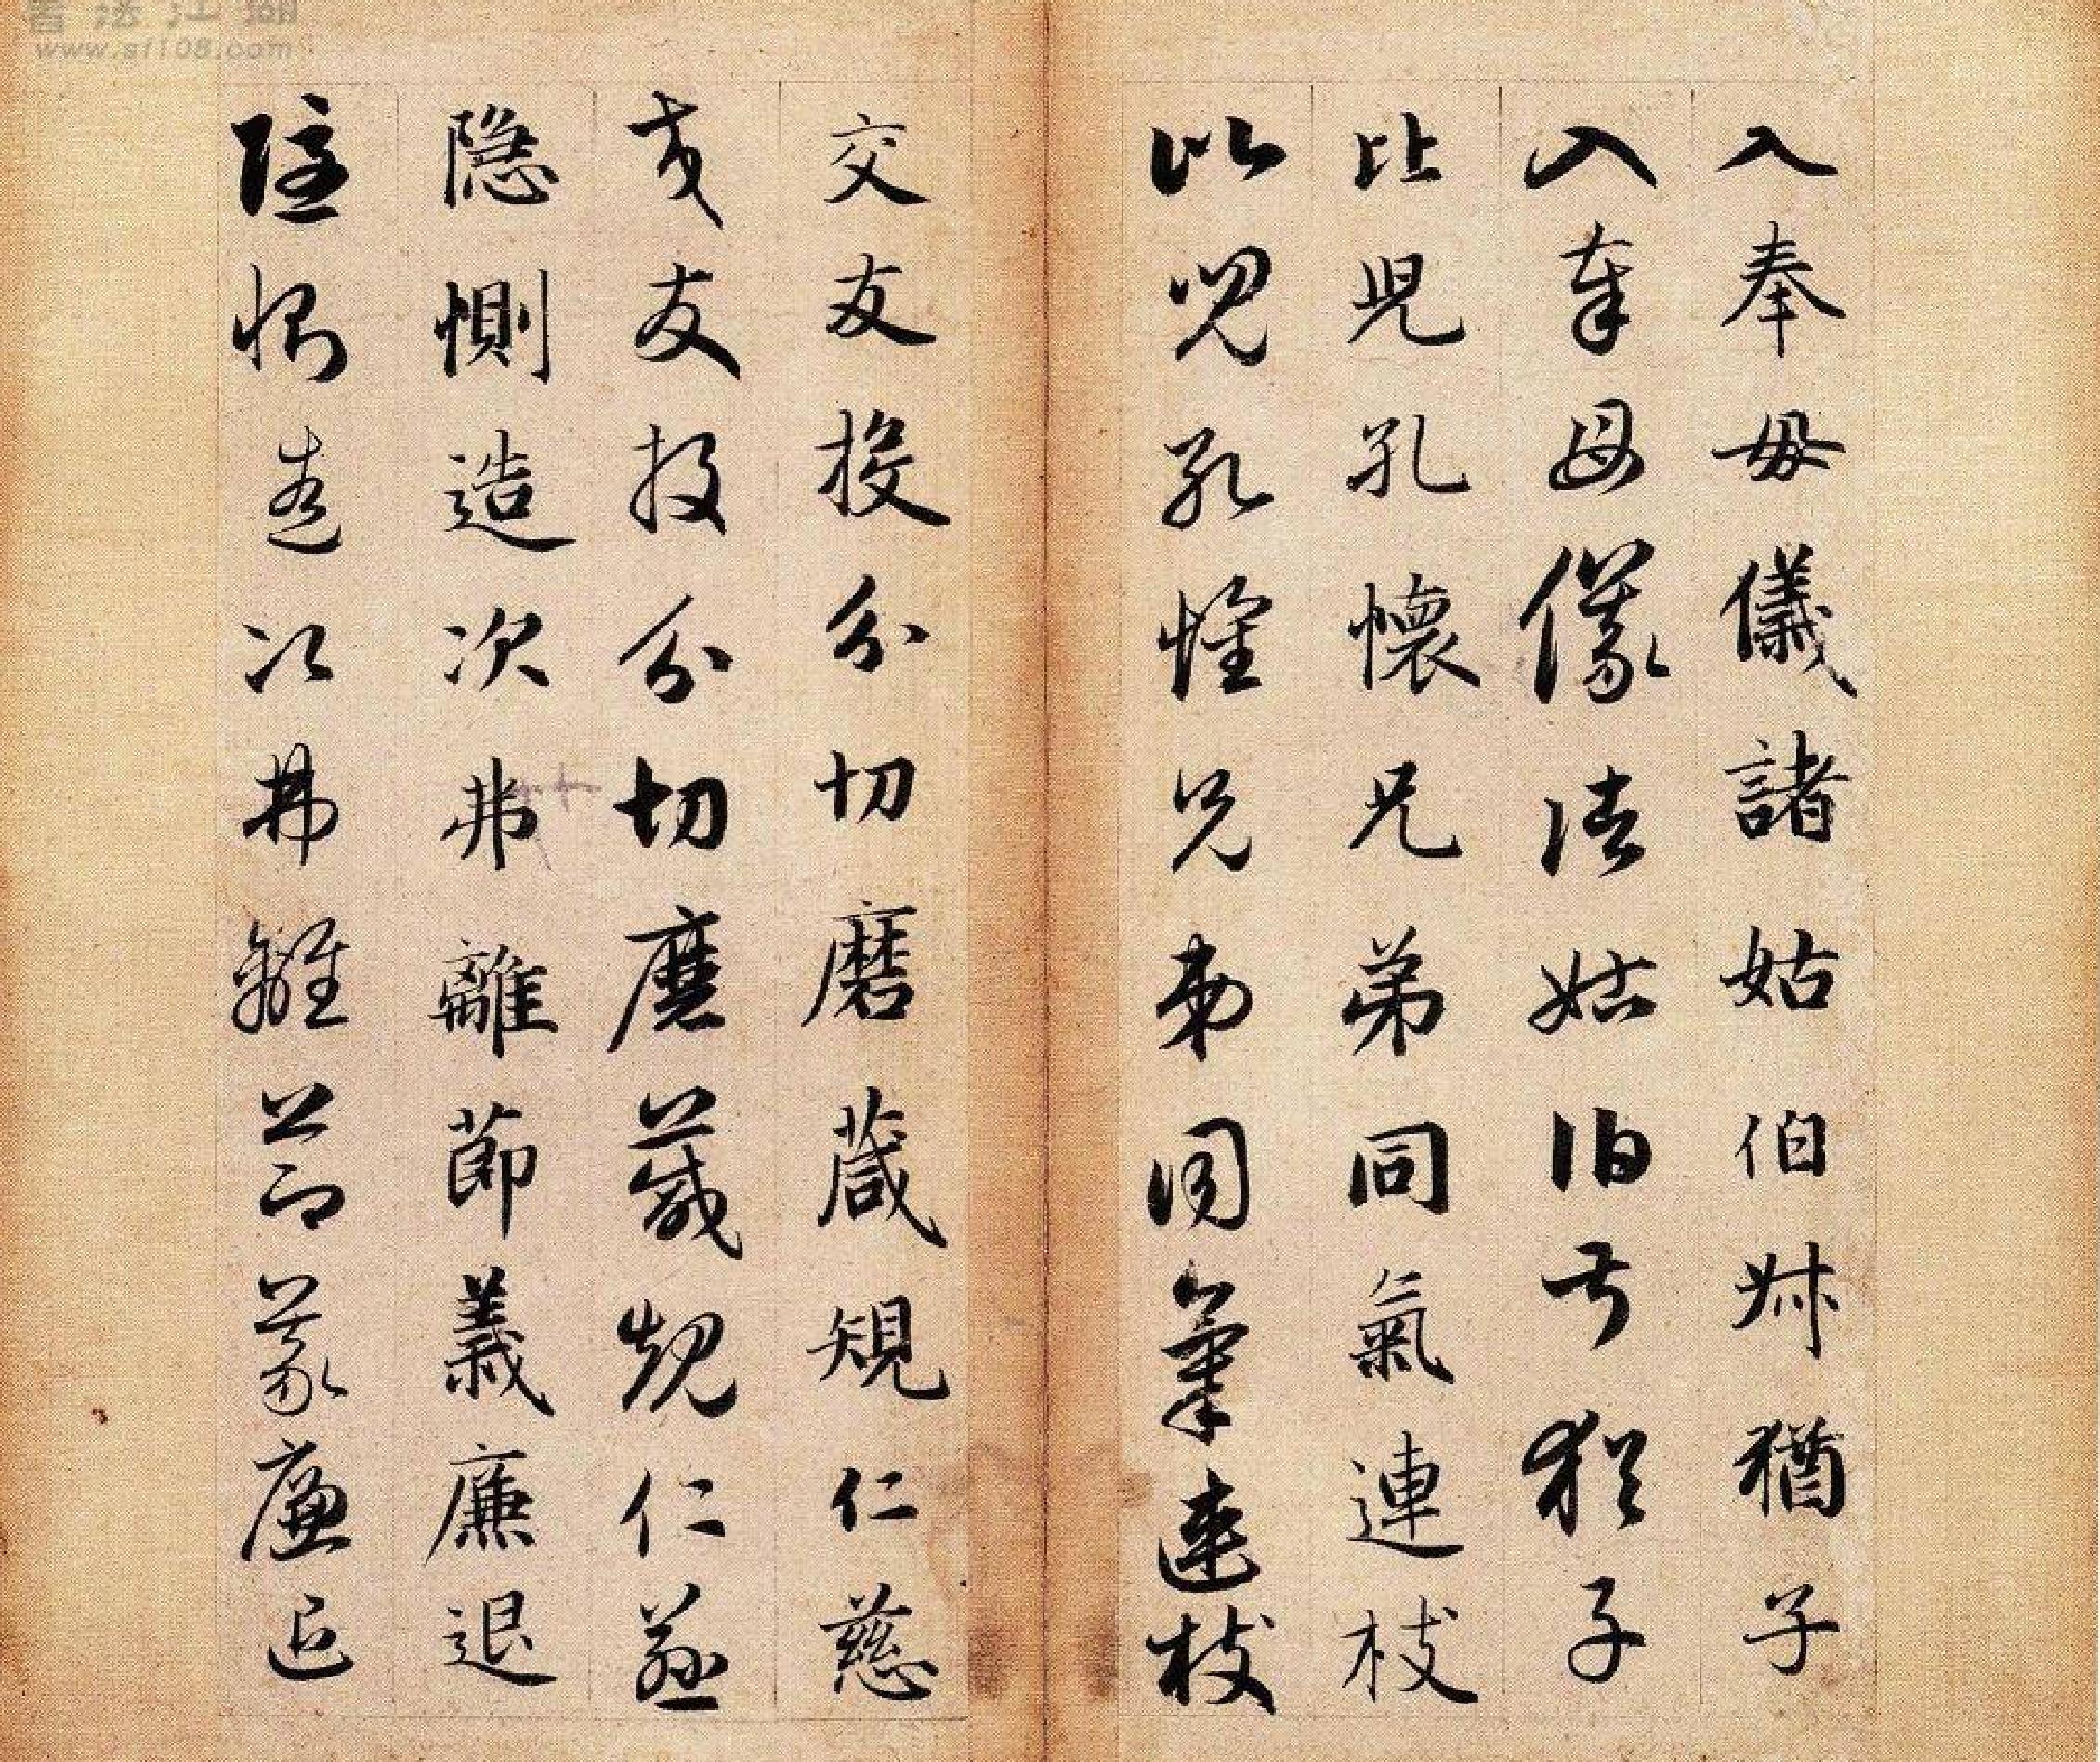 入奉母儀諸姑伯叔猶子
入奉母儀諸姑伯叔猶子
比兒孔懷兄弟同氣連枝
比兒孔懷兄弟同氣連枝
交友投分切磨葴規仁慈
交友投分切磨葴規仁慈
隐惻造次弗離節義廉退
隐惻造次弗離節義廉退
書法江湖
www.sf108.com